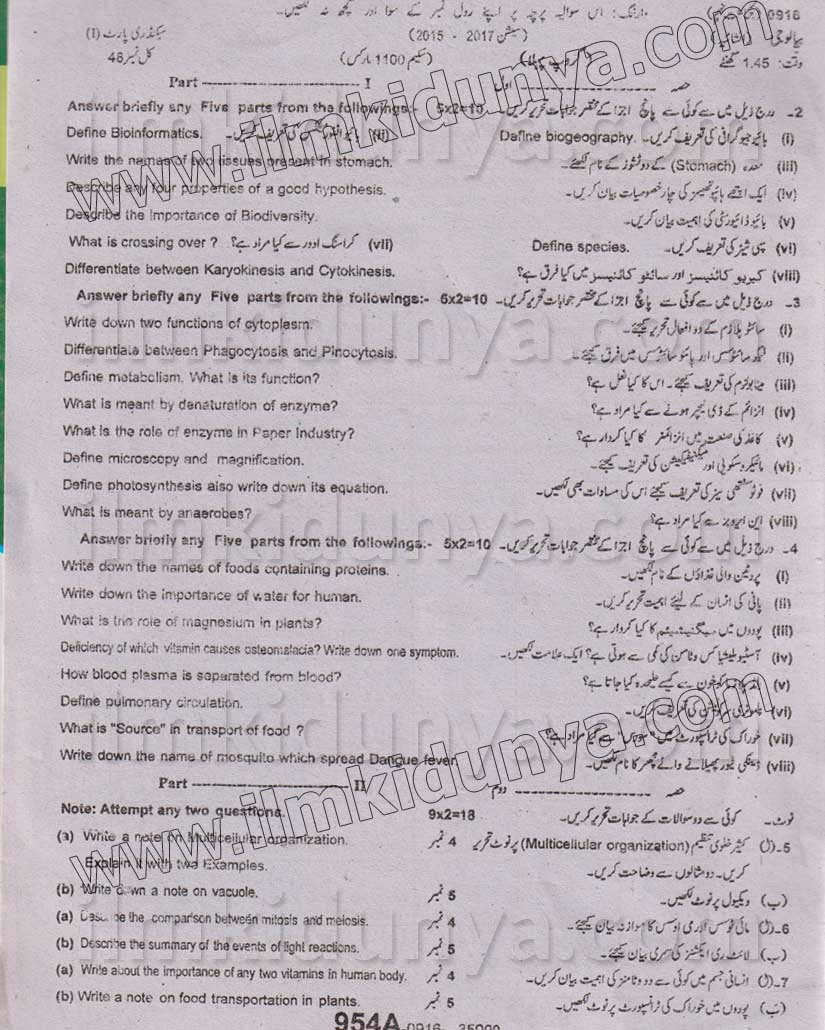 وارننگ:۔ اس سوالیہ پرچہ پر اپنے رول نمبر کے سوا اور کچھ نہ لکھیں۔ 0916
سیکنڈری پارٹ (I) (سیشن 2015 - 2017) بیالوجی
کل نمبر 46 (سکیم 1100 مارکس) گروپ پہلا وقت: 1.45 گھنٹے
Part -------------------- I حصہ -------------------- اول
Answer briefly any Five parts from the followings:- 5x2=10 2۔ درج ذیل میں سے کوئی سے پانچ اجزا کے مختصر جوابات تحریر کریں۔
Define Bioinformatics. (ii) Define biogeography. بائیوجیوگرافی کی تعریف کریں۔ (i)
Write the names of two tissues present in stomach. معدہ (Stomach) کے دو ٹشوز کے نام لکھیئے۔ (iii)
Describe any four properties of a good hypothesis. ایک اچھے ہائپوتھیسز کی چار خصوصیات بیان کریں۔ (iv)
Describe the Importance of Biodiversity. بائیوڈائیورسٹی کی اہمیت بیان کریں۔ (v)
What is crossing over ? کراسنگ اوور سے کیا مراد ہے؟ (vii) Define species. سپی شیز کی تعریف کریں۔ (vi)
Differentiate between Karyokinesis and Cytokinesis. کیریوکائنیسز اور سائٹوکائنیسز میں کیا فرق ہے؟ (viii)
Answer briefly any Five parts from the followings:- 5x2=10 3۔ درج ذیل میں سے کوئی سے پانچ اجزا کے مختصر جوابات تحریر کریں۔
Write down two functions of cytoplasm. سائٹوپلازم کے دو افعال تحریر کیجئے۔ (i)
Differentiate between Phagocytosis and Pinocytosis. فیگوسائٹوسس اور پائنوسائٹوسس میں فرق کیجئے۔ (ii)
Define metabolism. What is its function? میٹابولزم کی تعریف کیجئے۔ اس کا کیا فعل ہے؟ (iii)
What is meant by denaturation of enzyme? انزائم کے ڈی نیچر ہونے سے کیا مراد ہے؟ (iv)
What is the role of enzyme in Paper Industry? کاغذ کی صنعت میں انزائمز کا کیا کردار ہے؟ (v)
Define microscopy and magnification. مائیکروسکوپی اور میگنیفیکیشن کی تعریف کیجئے۔ (vi)
Define photosynthesis also write down its equation. فوٹوسنتھی سیز کی تعریف کیجئے اس کی مساوات بھی لکھیں۔ (vii)
What is meant by anaerobes? این ایروبز سے کیا مراد ہے؟ (viii)
Answer briefly any Five parts from the followings:- 5x2=10 4۔ درج ذیل میں سے کوئی سے پانچ اجزا کے مختصر جوابات تحریر کریں۔
Write down the names of foods containing proteins. پروٹین والی غذاؤں کے نام لکھیں۔ (i)
Write down the importance of water for human. پانی کی انسان کے لیئے اہمیت تحریر کریں۔ (ii)
What is the role of magnesium in plants? پودوں میں میگنیشیم کا کیا کردار ہے؟ (iii)
Deficiency of which vitamin causes osteomalacia? Write down one symptom. آسٹیوملیشیا کس وٹامن کی کمی سے ہوتی ہے؟ ایک علامت لکھیں۔ (iv)
How blood plasma is separated from blood? خون سے کیسے علیحدہ کیا جاتا ہے؟ (v)
Define pulmonary circulation. کی تعریف کریں۔ (vi)
What is "Source" in transport of food ? خوراک کی ٹرانسپورٹ میں "سورس" سے کیا مراد ہے؟ (vii)
Write down the name of mosquito which spread Dangue fever. ڈینگی فیور پھیلانے والے مچھر کا نام لکھیں۔ (viii)
Part -------------------- II حصہ -------------------- دوم
Note: Attempt any two questions. 9x2=18 نوٹ۔ کوئی سے دو سوالات کے جوابات تحریر کریں۔
(a) Write a note on Multicellular organization. 4 نمبر 5۔(ل) کثیر خلوی تنظیم (Multicellular organization) پر نوٹ تحریر
Explain it with two Examples. کریں۔ دو مثالوں سے وضاحت کریں۔
(b) Write down a note on vacuole. 5 نمبر (ب) ویکیول پر نوٹ لکھیں۔
(a) Describe the comparison between mitosis and meiosis. 4 نمبر 6۔(ل) مائی ٹوسس اور می اوسس کا موازنہ بیان کیجئے۔
(b) Describe the summary of the events of light reactions. 5 نمبر (ب) لائٹ ری ایکشنز کی سمری بیان کیجئے۔
(a) Write about the importance of any two vitamins in human body. 4 نمبر 7۔(ل) انسانی جسم میں کوئی سے دو وٹامنز کی اہمیت بیان کریں۔
(b) Write a note on food transportation in plants. 5 نمبر (ب) پودوں میں خوراک کی ٹرانسپورٹ پر نوٹ لکھیں۔
954A-0916--35000
www.ilmkidunya.com
www.ilmkidunya.com
ilmkidunya.com
ilmkidunya.com
ilmkidunya.com
ilmkidunya.com